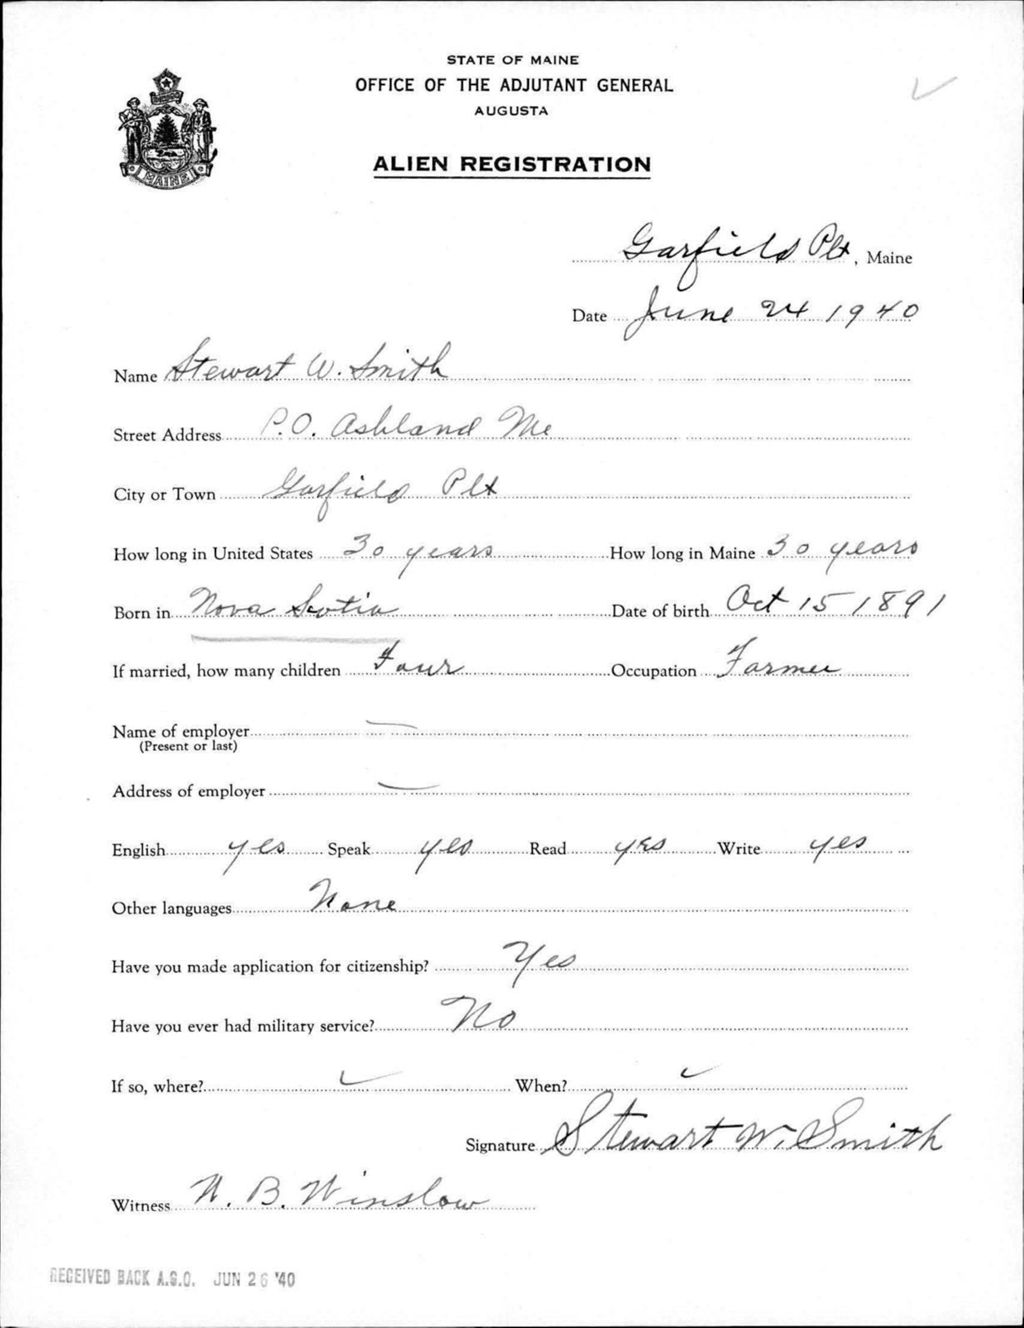 STATE OF MAINE
OFFICE OF THE ADJUTANT GENERAL
AUGUSTA
ALIEN REGISTRATION
MAINE
Garfield Plt, Maine
Date June 24 1940
Name Stewart W. Smith
Street Address P.O. Ashland Me
City or Town Garfield Plt
How long in United States 30 years How long in Maine 30 years
Born in Nova Scotia Date of birth Oct 15 1891
If married, how many children Four Occupation Farmer
Name of employer —
(Present or last)
Address of employer —
English yes Speak yes Read yes Write yes
Other languages None
Have you made application for citizenship? Yes
Have you ever had military service? No
If so, where? ✓ When? ✓
Signature Stewart W. Smith
Witness N. B. Winslow
RECEIVED BACK A.G.O. JUN 26 '40